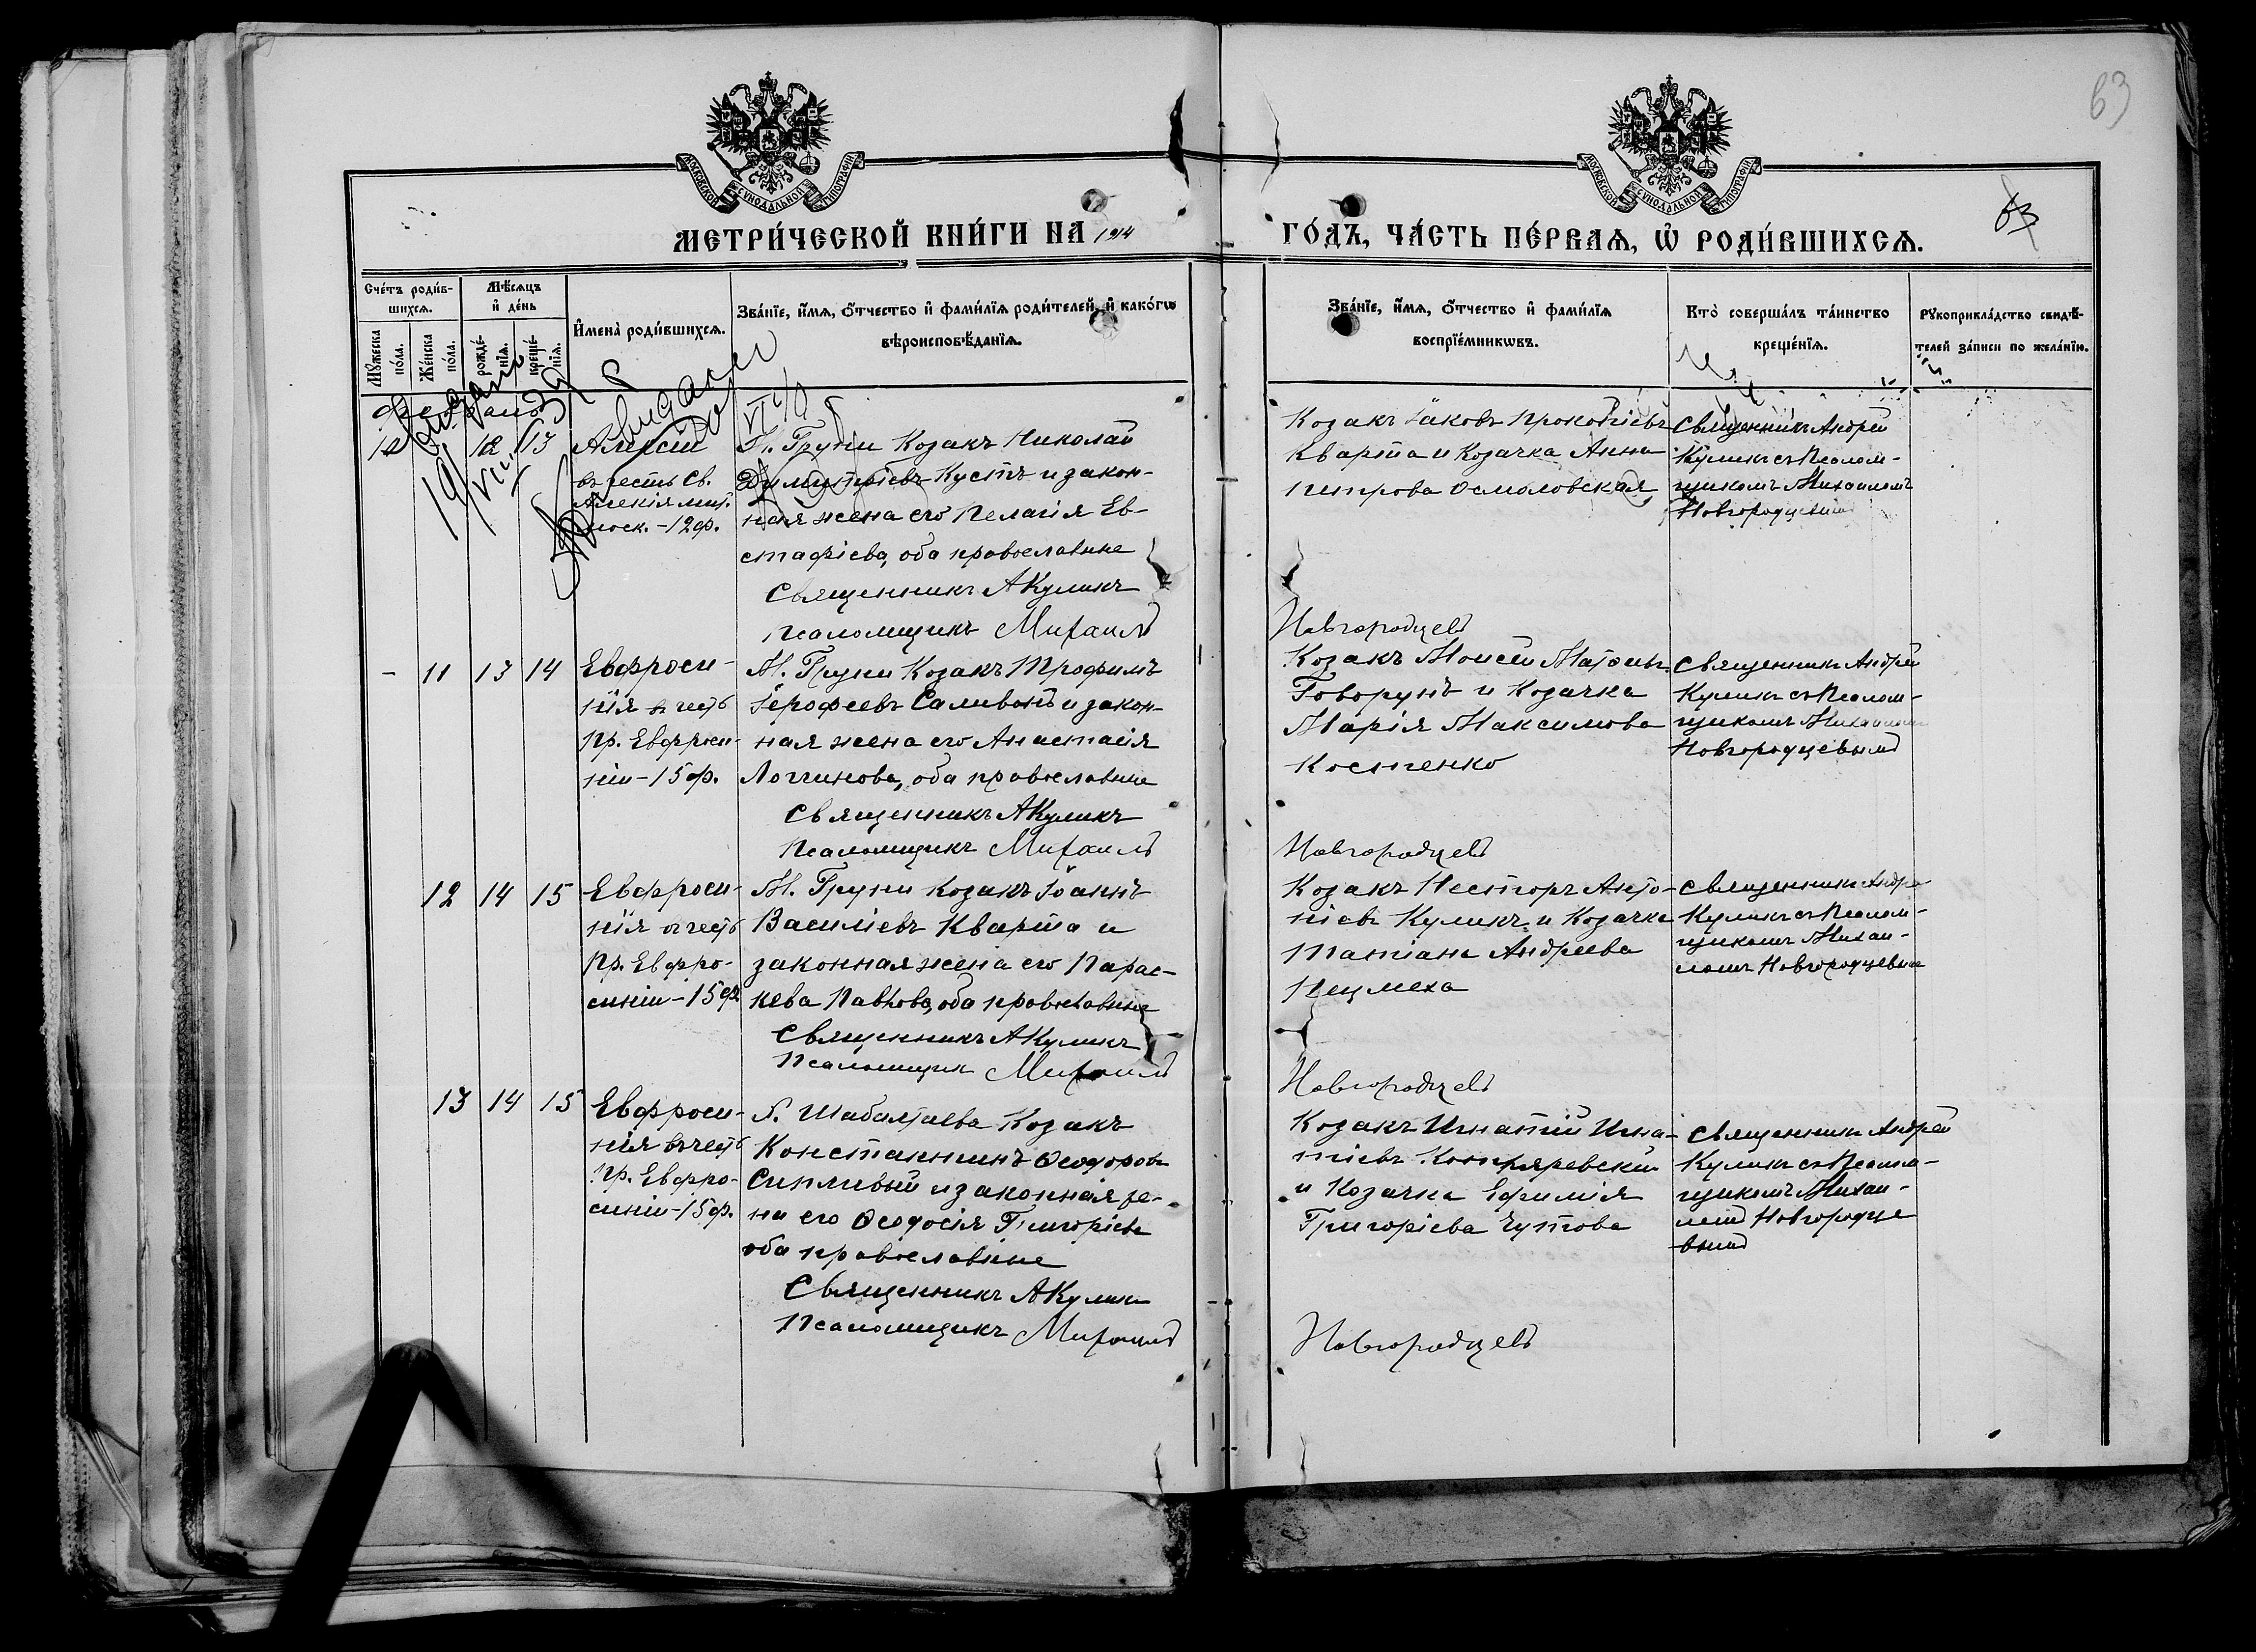 63
63
МОСКОВСКОЙ СѴНОДАЛЬНОЙ ТИПОГРАФІИ
МОСКОВСКОЙ СѴНОДАЛЬНОЙ ТИПОГРАФІИ
МЕТРИ́ЧЕСКОЙ КНИ́ГИ НА 1914
ГО́ДЪ, ЧА́СТЬ ПЕ́РВАѦ, Ѡ҆ РОДИ́ВШИХСѦ.
Сче́тъ роди́в-
шихсѧ.
Мѣ́сѧцъ
и҆ де́нь
И҆мена̀ роди́вшихсѧ.
Зва́нїе, и҆́мѧ, ѻ҆́тчество и҆ фами́лїѧ роди́телей, и҆ како́гѡ
вѣроисповѣ́данїѧ.
Мꙋ́жеска
по́ла.
Же́нска
по́ла.
рожде́-
нїѧ.
креще́-
нїѧ.
Зва́нїе, и҆́мѧ, ѻ҆́тчество и҆ фами́лїѧ
воспрїе́мникѡвъ.
Кто̀ соверша́лъ та́инство
креще́нїѧ.
Рꙋкоприкла́дство свидѣ́-
телей за́писи по жела́нїю.
12 13 Алексій
въ честь Св.
Алексія мит.
моск. - 12 ф.
М. Груни Козакъ Николай
Димитріевъ Кустъ и закон-
ная жена его Пелагія Ев-
стафіева, оба православные
Священникъ А Куликъ
Псаломщикъ Михаилъ
Козакъ Іаковъ Прокопіевъ
Кварта и Козачка Анна
Петрова Осмоловская
Новгородцевъ
Священникъ Андрей
Куликъ съ Псалом-
щикомъ Михаиломъ
Новгородцевымъ
- 11 13 14 Евфроси-
нія въ честь
пр. Евфроси-
ніи - 15 ф.
М. Груни Козакъ Трофимъ
Іерофеевъ Саливонъ и закон-
ная жена его Анастасія
Логгинова, оба православные
Священникъ А Куликъ
Псаломщикъ Михаилъ
Козакъ Моисей
Говорунъ и Козачка
Марія Максимова
Костенко
Новгородцевъ
Священникъ Андрей
Куликъ съ Псалом-
щикомъ Михаиломъ
Новгородцевымъ
12 14 15 Евфроси-
нія въ честь
пр. Евфро-
синіи - 15 ф.
М. Груни Козакъ Іоаннъ
Василіевъ Кварта и
законная жена его Парас-
кева Павлова, оба православные
Священникъ А Куликъ
Псаломщикъ Михаилъ
Козакъ Несторъ Анто-
ніевъ Куликъ и Козачка
Татіана Андреева
Новгородцевъ
Священникъ Андрей
Куликъ съ Псалом-
щикомъ Михаи-
ломъ Новгородцевымъ
13 14 15 Евфроси-
нія въ честь
пр. Евфро-
синіи - 15 ф.
Козакъ
Константинъ Ѳеодоровъ
Сипливый и законная же-
на его Ѳеодосія Григоріева
оба православные
Священникъ А Куликъ
Псаломщикъ Михаилъ
Козакъ Игнатій Игна-
тіевъ Котляревскій
и Козачка Ефимія
Григоріева Чутова
Новгородцевъ
Священникъ Андрей
Куликъ съ Псалом-
щикомъ Михаи-
ломъ Новгородце
вымъ